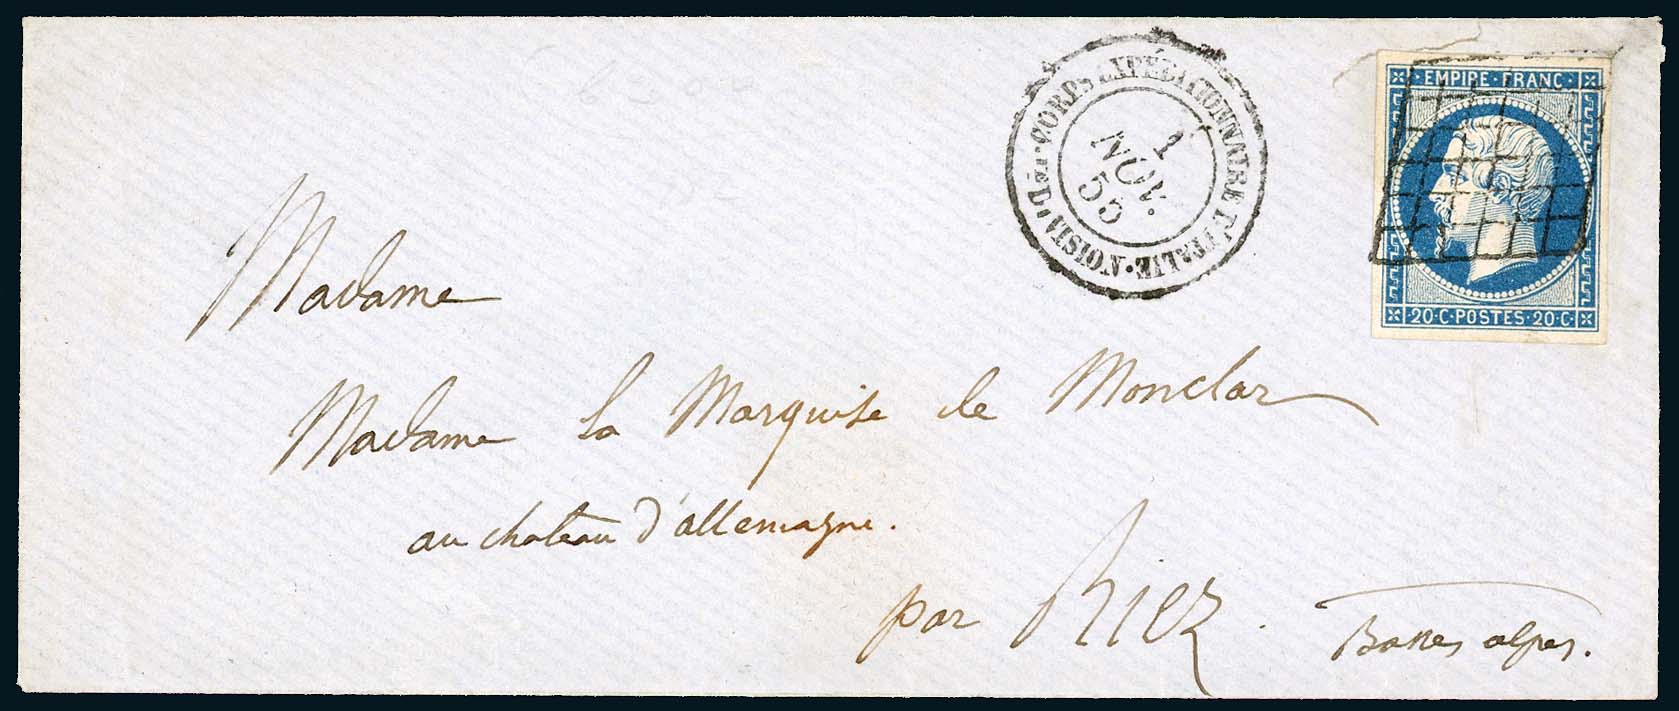 CORPS EXPÉDITIONNAIRE D'ITALIE · Ière DIVISION ·
1
NOV.
55
EMPIRE · FRANC ·
20 · C · POSTES · 20 · C ·
Madame
Madame la Marquise de Monclar
au chateau d'allemagne.
par Riez.
Basses alpes.